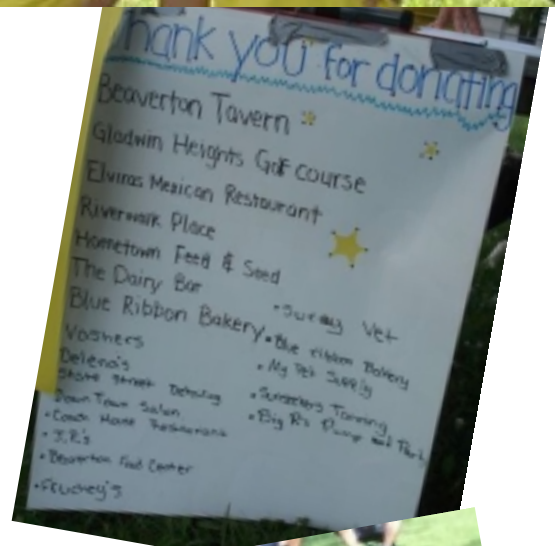 Thank you for donating
Beaverton Tavern
Gladwin Heights Golf course
Elviras Mexican Restaurant
Riverwalk Place
Hometown Feed & Seed
The Dairy Bar
Blue Ribbon Bakery
Vashers
Delena's
State Street Detailing
Down Town Salon
• Coach House Restaurant
• J.R's
• Beaverton Food Center
• Vet
• Blue ribbon Bakery
• My Pet Supply
• Tanning
• Big R's